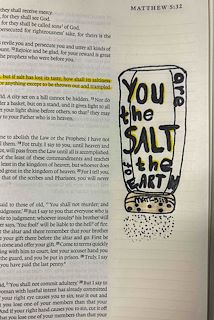 MATTHEW 5:32
they shall receive mercy.
for they shall see God.
for they shall be called sons of God.
persecuted for righteousness' sake, for theirs is the
revile you and persecute you and utter all kinds of
ount. Rejoice and be glad, for your reward is great
the prophets who were before you.
but if salt has lost its taste, how shall its saltiness
or anything except to be thrown out and trampled
A city set on a hill cannot be hidden. Nor do
a basket, but on a stand, and it gives light to all
your light shine before others, so that they may
to your Father who is in heaven.
me to abolish the Law or the Prophets; I have not
them. For truly, I say to you, until heaven and
will pass from the Law until all is accomplished.
the least of these commandments and teaches
least in the kingdom of heaven, but whoever does
great in the kingdom of heaven. For I tell you,
that of the scribes and Pharisees, you will never
said to those of old, 'You shall not murder;
judgment.' But I say to you that everyone who is
to judgment; whoever insults his brother will
says, 'You fool!' will be liable to the hell of fire.
the altar and there remember that your brother
your gift before the altar and go. First be
come and offer your gift. Come to terms quickly
with him to court, lest your accuser hand you
the guard, and you be put in prison. Truly, I say
you have paid the last penny.
said, 'You shall not commit adultery.' But I say to
woman with lustful intent has already committed
your right eye causes you to sin, tear it out and
lose one of your members than that your
And if your right hand causes you to sin, cut it off
you lose one of your members than that your
YOU are
the
SALT
to the
EARTH